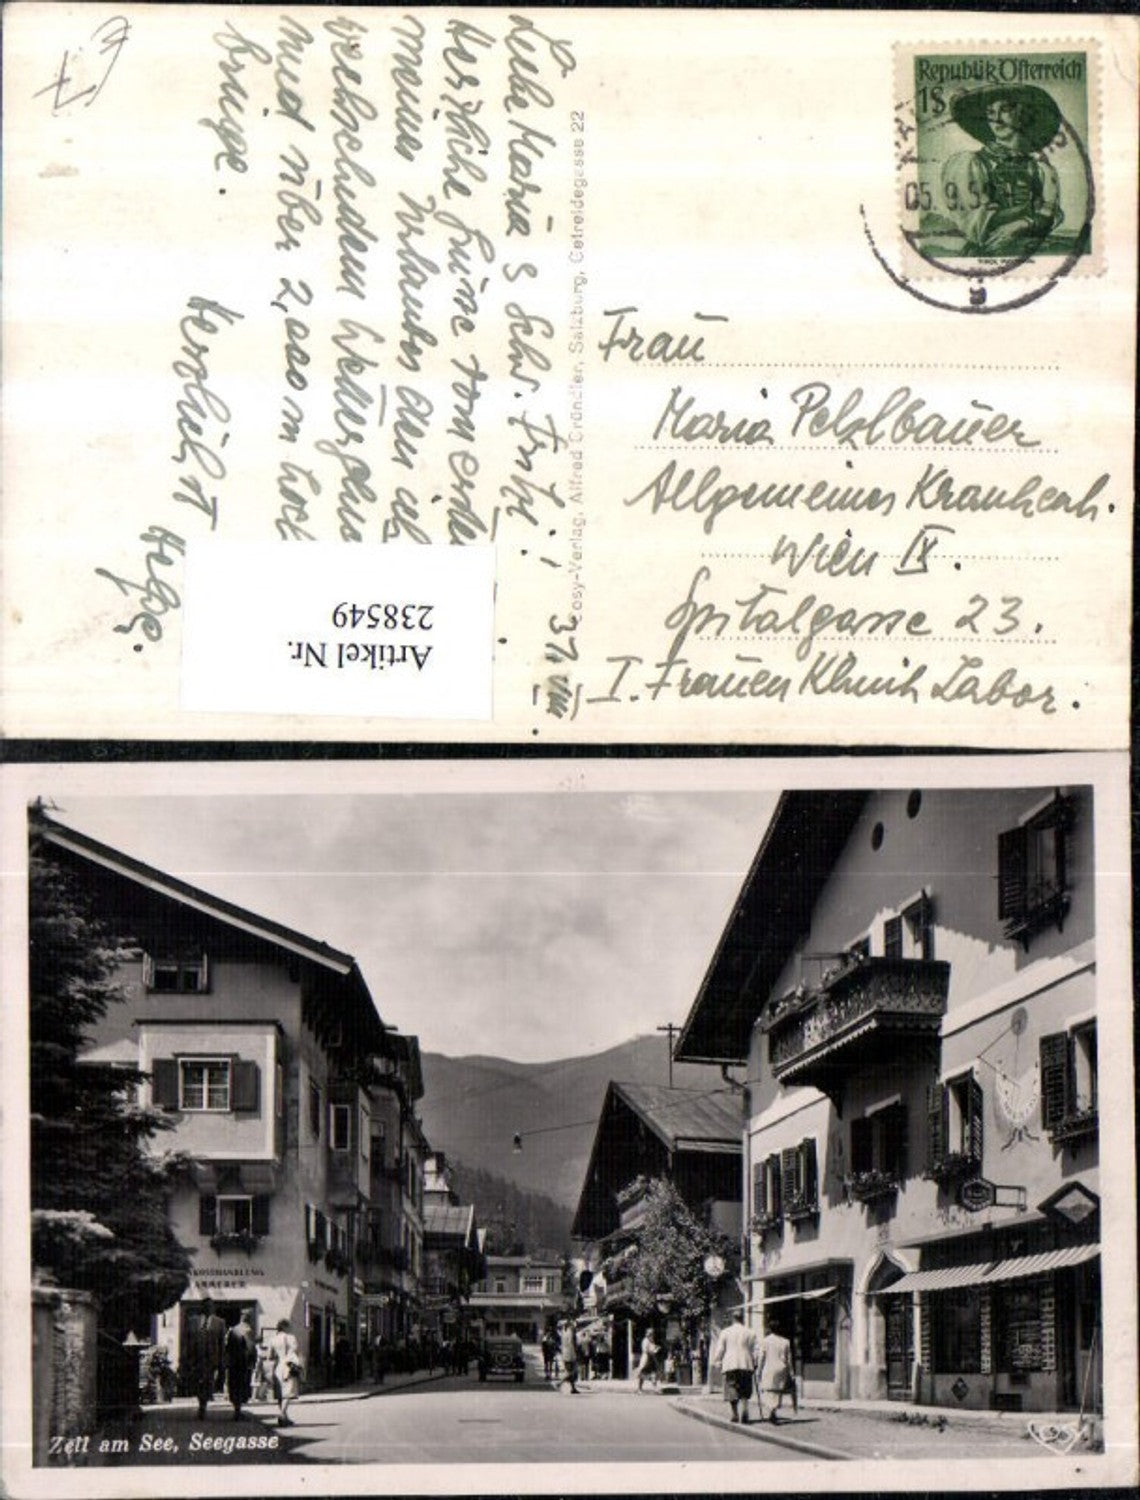 Liebe Maria & Schw. Fritzi!
Herzliche Grüße vom ersten
meines Urlaubes den ich
bei
und über 2,000 m hoch
bringe.
Herzlichst
Helge.
31. VIII
Cosy-Verlag, Alfred Gründler, Salzburg, Getreidegasse 22
Artikel Nr.
238549
Republik Österreich
1 S
05.9.52
Frau
Maria Pelzlbauer
Allgemeines Krankenh.
Wien IX.
Spitalgasse 23.
I. Frauen Klinik Labor.
KOSTHANDLUNG
AMMERER
Zell am See, Seegasse